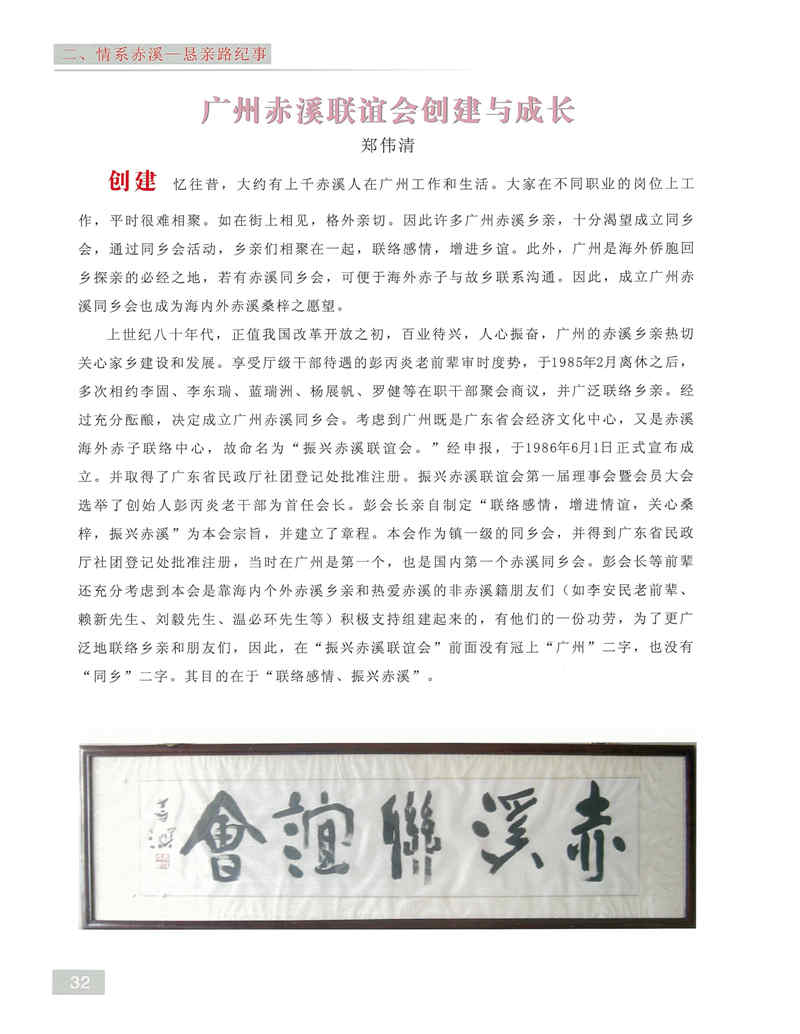 二、情系赤溪—恳亲路纪事
广州赤溪联谊会创建与成长
郑伟清
创建 忆往昔，大约有上千赤溪人在广州工作和生活。大家在不同职业的岗位上工
作，平时很难相聚。如在街上相见，格外亲切。因此许多广州赤溪乡亲，十分渴望成立同乡
会，通过同乡会活动，乡亲们相聚在一起，联络感情，增进乡谊。此外，广州是海外侨胞回
乡探亲的必经之地，若有赤溪同乡会，可便于海外赤子与故乡联系沟通。因此，成立广州赤
溪同乡会也成为海内外赤溪桑梓之愿望。
上世纪八十年代，正值我国改革开放之初，百业待兴，人心振奋，广州的赤溪乡亲热切
关心家乡建设和发展。享受厅级干部待遇的彭丙炎老前辈审时度势，于1985年2月离休之后，
多次相约李固、李东瑞、蓝瑞洲、杨展帆、罗健等在职干部聚会商议，并广泛联络乡亲。经
过充分酝酿，决定成立广州赤溪同乡会。考虑到广州既是广东省会经济文化中心，又是赤溪
海外赤子联络中心，故命名为“振兴赤溪联谊会。”经申报，于1986年6月1日正式宣布成
立。并取得了广东省民政厅社团登记处批准注册。振兴赤溪联谊会第一届理事会暨会员大会
选举了创始人彭丙炎老干部为首任会长。彭会长亲自制定“联络感情，增进情谊，关心桑
梓，振兴赤溪”为本会宗旨，并建立了章程。本会作为镇一级的同乡会，并得到广东省民政
厅社团登记处批准注册，当时在广州是第一个，也是国内第一个赤溪同乡会。彭会长等前辈
还充分考虑到本会是靠海内个外赤溪乡亲和热爱赤溪的非赤溪籍朋友们（如李安民老前辈、
赖新先生、刘毅先生、温必环先生等）积极支持组建起来的，有他们的一份功劳，为了更广
泛地联络乡亲和朋友们，因此，在“振兴赤溪联谊会”前面没有冠上“广州”二字，也没有
“同乡”二字。其目的在于“联络感情、振兴赤溪”。
赤溪聯誼會
32